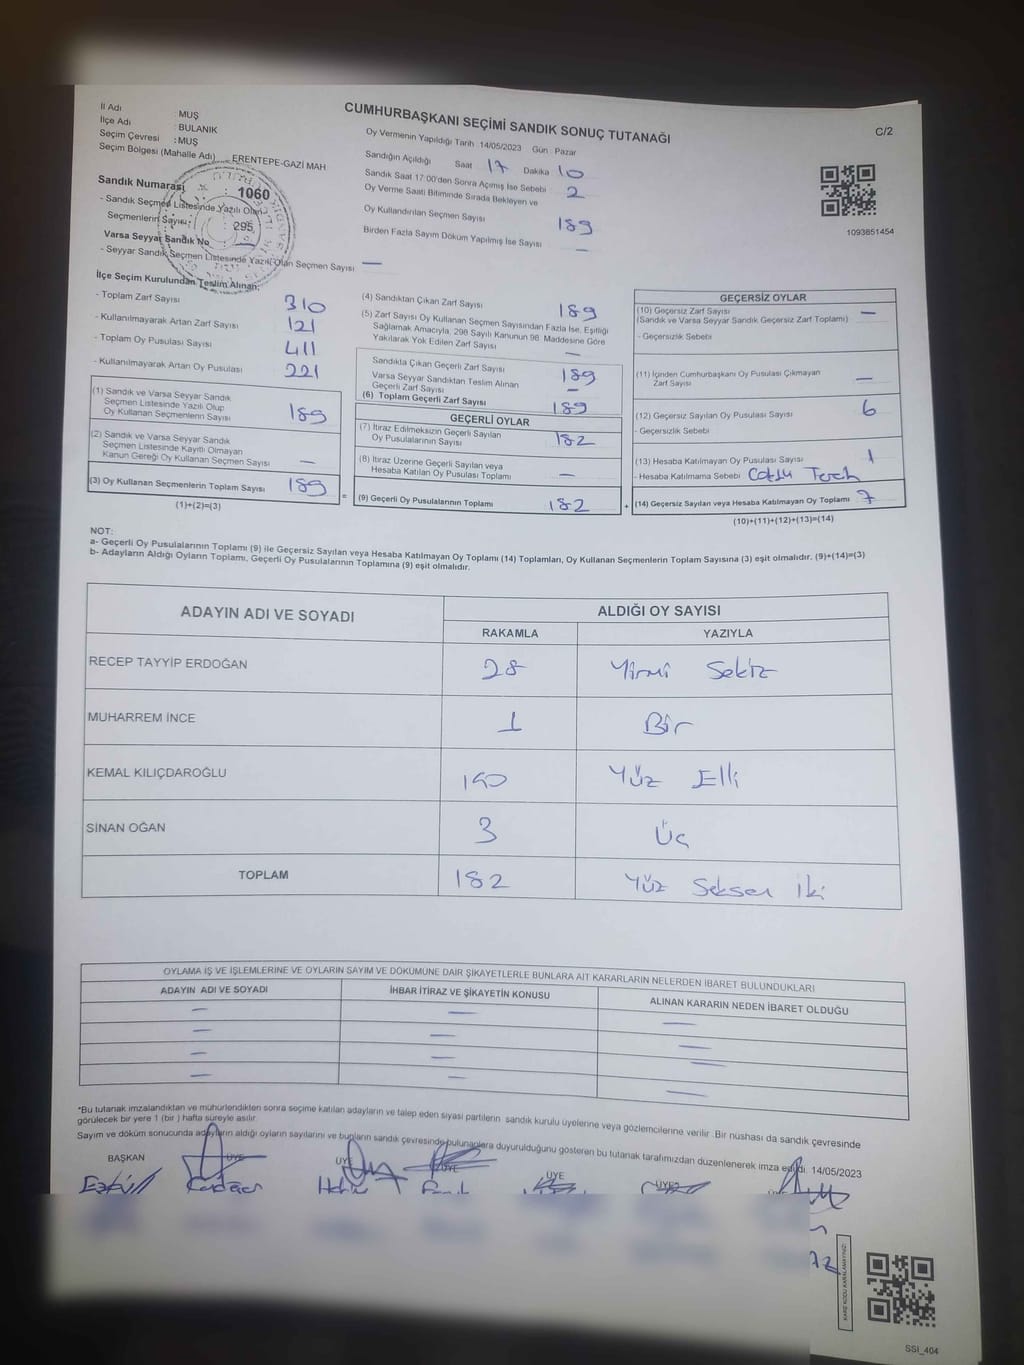 CUMHURBAŞKANI SEÇİMİ SANDIK SONUÇ TUTANAĞI
C/2
İl Adı : MUŞ
İlçe Adı : BULANIK
Seçim Çevresi : MUŞ
Seçim Bölgesi (Mahalle Adı) : ERENTEPE-GAZİ MAH
Sandık Numarası : 1060
- Sandık Seçmen Listesinde Yazılı Olan
Seçmenlerin Sayısı : 295
Varsa Seyyar Sandık No
- Seyyar Sandık Seçmen Listesinde Yazılı Olan Seçmen Sayısı —
Oy Vermenin Yapıldığı Tarih 14/05/2023 Gün : Pazar
Sandığın Açıldığı Saat 17 Dakika 10
Sandık Saat 17:00'den Sonra Açılmış İse Sebebi
Oy Verme Saati Bitiminde Sırada Bekleyen ve 2
Oy Kullandırılan Seçmen Sayısı 189
Birden Fazla Sayım Döküm Yapılmış İse Sayısı —
1093851454
İlçe Seçim Kurulundan Teslim Alınan;
- Toplam Zarf Sayısı 310
- Kullanılmayarak Artan Zarf Sayısı 121
- Toplam Oy Pusulası Sayısı 411
- Kullanılmayarak Artan Oy Pusulası 221
(1) Sandık ve Varsa Seyyar Sandık
Seçmen Listesinde Yazılı Olup
Oy Kullanan Seçmenlerin Sayısı 189
(2) Sandık ve Varsa Seyyar Sandık
Seçmen Listesinde Kayıtlı Olmayan
Kanun Gereği Oy Kullanan Seçmen Sayısı —
(3) Oy Kullanan Seçmenlerin Toplam Sayısı 189
(1)+(2)=(3)
=
(4) Sandıktan Çıkan Zarf Sayısı 189
(5) Zarf Sayısı Oy Kullanan Seçmen Sayısından Fazla İse, Eşitliği
Sağlamak Amacıyla, 298 Sayılı Kanunun 98. Maddesine Göre
Yakılarak Yok Edilen Zarf Sayısı —
Sandıkta Çıkan Geçerli Zarf Sayısı 189
Varsa Seyyar Sandıktan Teslim Alınan
Geçerli Zarf Sayısı —
(6) Toplam Geçerli Zarf Sayısı 189
GEÇERLİ OYLAR
(7) İtiraz Edilmeksizin Geçerli Sayılan
Oy Pusulalarının Sayısı 182
(8) İtiraz Üzerine Geçerli Sayılan veya
Hesaba Katılan Oy Pusulası Toplamı —
(9) Geçerli Oy Pusulalarının Toplamı 182
+
GEÇERSİZ OYLAR
(10) Geçersiz Zarf Sayısı —
(Sandık ve Varsa Seyyar Sandık Geçersiz Zarf Toplamı)
- Geçersizlik Sebebi
(11) İçinden Cumhurbaşkanı Oy Pusulası Çıkmayan
Zarf Sayısı —
(12) Geçersiz Sayılan Oy Pusulası Sayısı 6
- Geçersizlik Sebebi
(13) Hesaba Katılmayan Oy Pusulası Sayısı 1
- Hesaba Katılmama Sebebi
(14) Geçersiz Sayılan veya Hesaba Katılmayan Oy Toplamı 7
(10)+(11)+(12)+(13)=(14)
NOT:
a- Geçerli Oy Pusulalarının Toplamı (9) ile Geçersiz Sayılan veya Hesaba Katılmayan Oy Toplamı (14) Toplamları, Oy Kullanan Seçmenlerin Toplam Sayısına (3) eşit olmalıdır. (9)+(14)=(3)
b- Adayların Aldığı Oyların Toplamı, Geçerli Oy Pusulalarının Toplamına (9) eşit olmalıdır.
ADAYIN ADI VE SOYADI
ALDIĞI OY SAYISI
RAKAMLA YAZIYLA
RECEP TAYYİP ERDOĞAN 28 Yirmi Sekiz
MUHARREM İNCE 1 Bir
KEMAL KILIÇDAROĞLU 150 Yüz Elli
SİNAN OĞAN 3 Üç
TOPLAM 182 Yüz Seksen İki
OYLAMA İŞ VE İŞLEMLERİNE VE OYLARIN SAYIM VE DÖKÜMÜNE DAİR ŞİKAYETLERLE BUNLARA AİT KARARLARIN NELERDEN İBARET BULUNDUKLARI
ADAYIN ADI VE SOYADI İHBAR İTİRAZ VE ŞİKAYETİN KONUSU ALINAN KARARIN NEDEN İBARET OLDUĞU
— — —
— — —
— — —
— — —
*Bu tutanak imzalandıktan ve mühürlendikten sonra seçime katılan adayların ve talep eden siyasi partilerin sandık kurulu üyelerine veya gözlemcilerine verilir. Bir nüshası da sandık çevresinde
görülecek bir yere 1 (bir) hafta süreyle asılır.
Sayım ve döküm sonucunda adayların aldığı oyların sayılarını ve bunların sandık çevresinde bulunanlara duyurulduğunu gösteren bu tutanak tarafımızdan düzenlenerek imza edildi. 14/05/2023
BAŞKAN ÜYE ÜYE ÜYE ÜYE ÜYE
KARE KODU KARALAMAYINIZ!
SSI_404